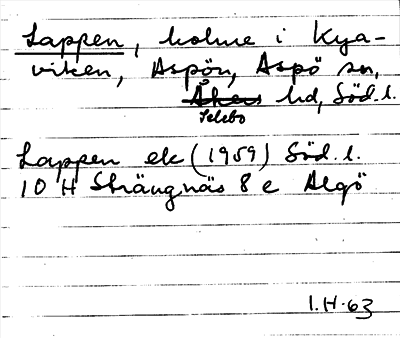 Lappen, holme i Kya-
viken, Aspön, Aspö sn,
Åkers hd, Söd.l.
Selebo
Lappen ek (1959) Söd.l.
10 H Strängnäs 8 e Algö
I.H-63